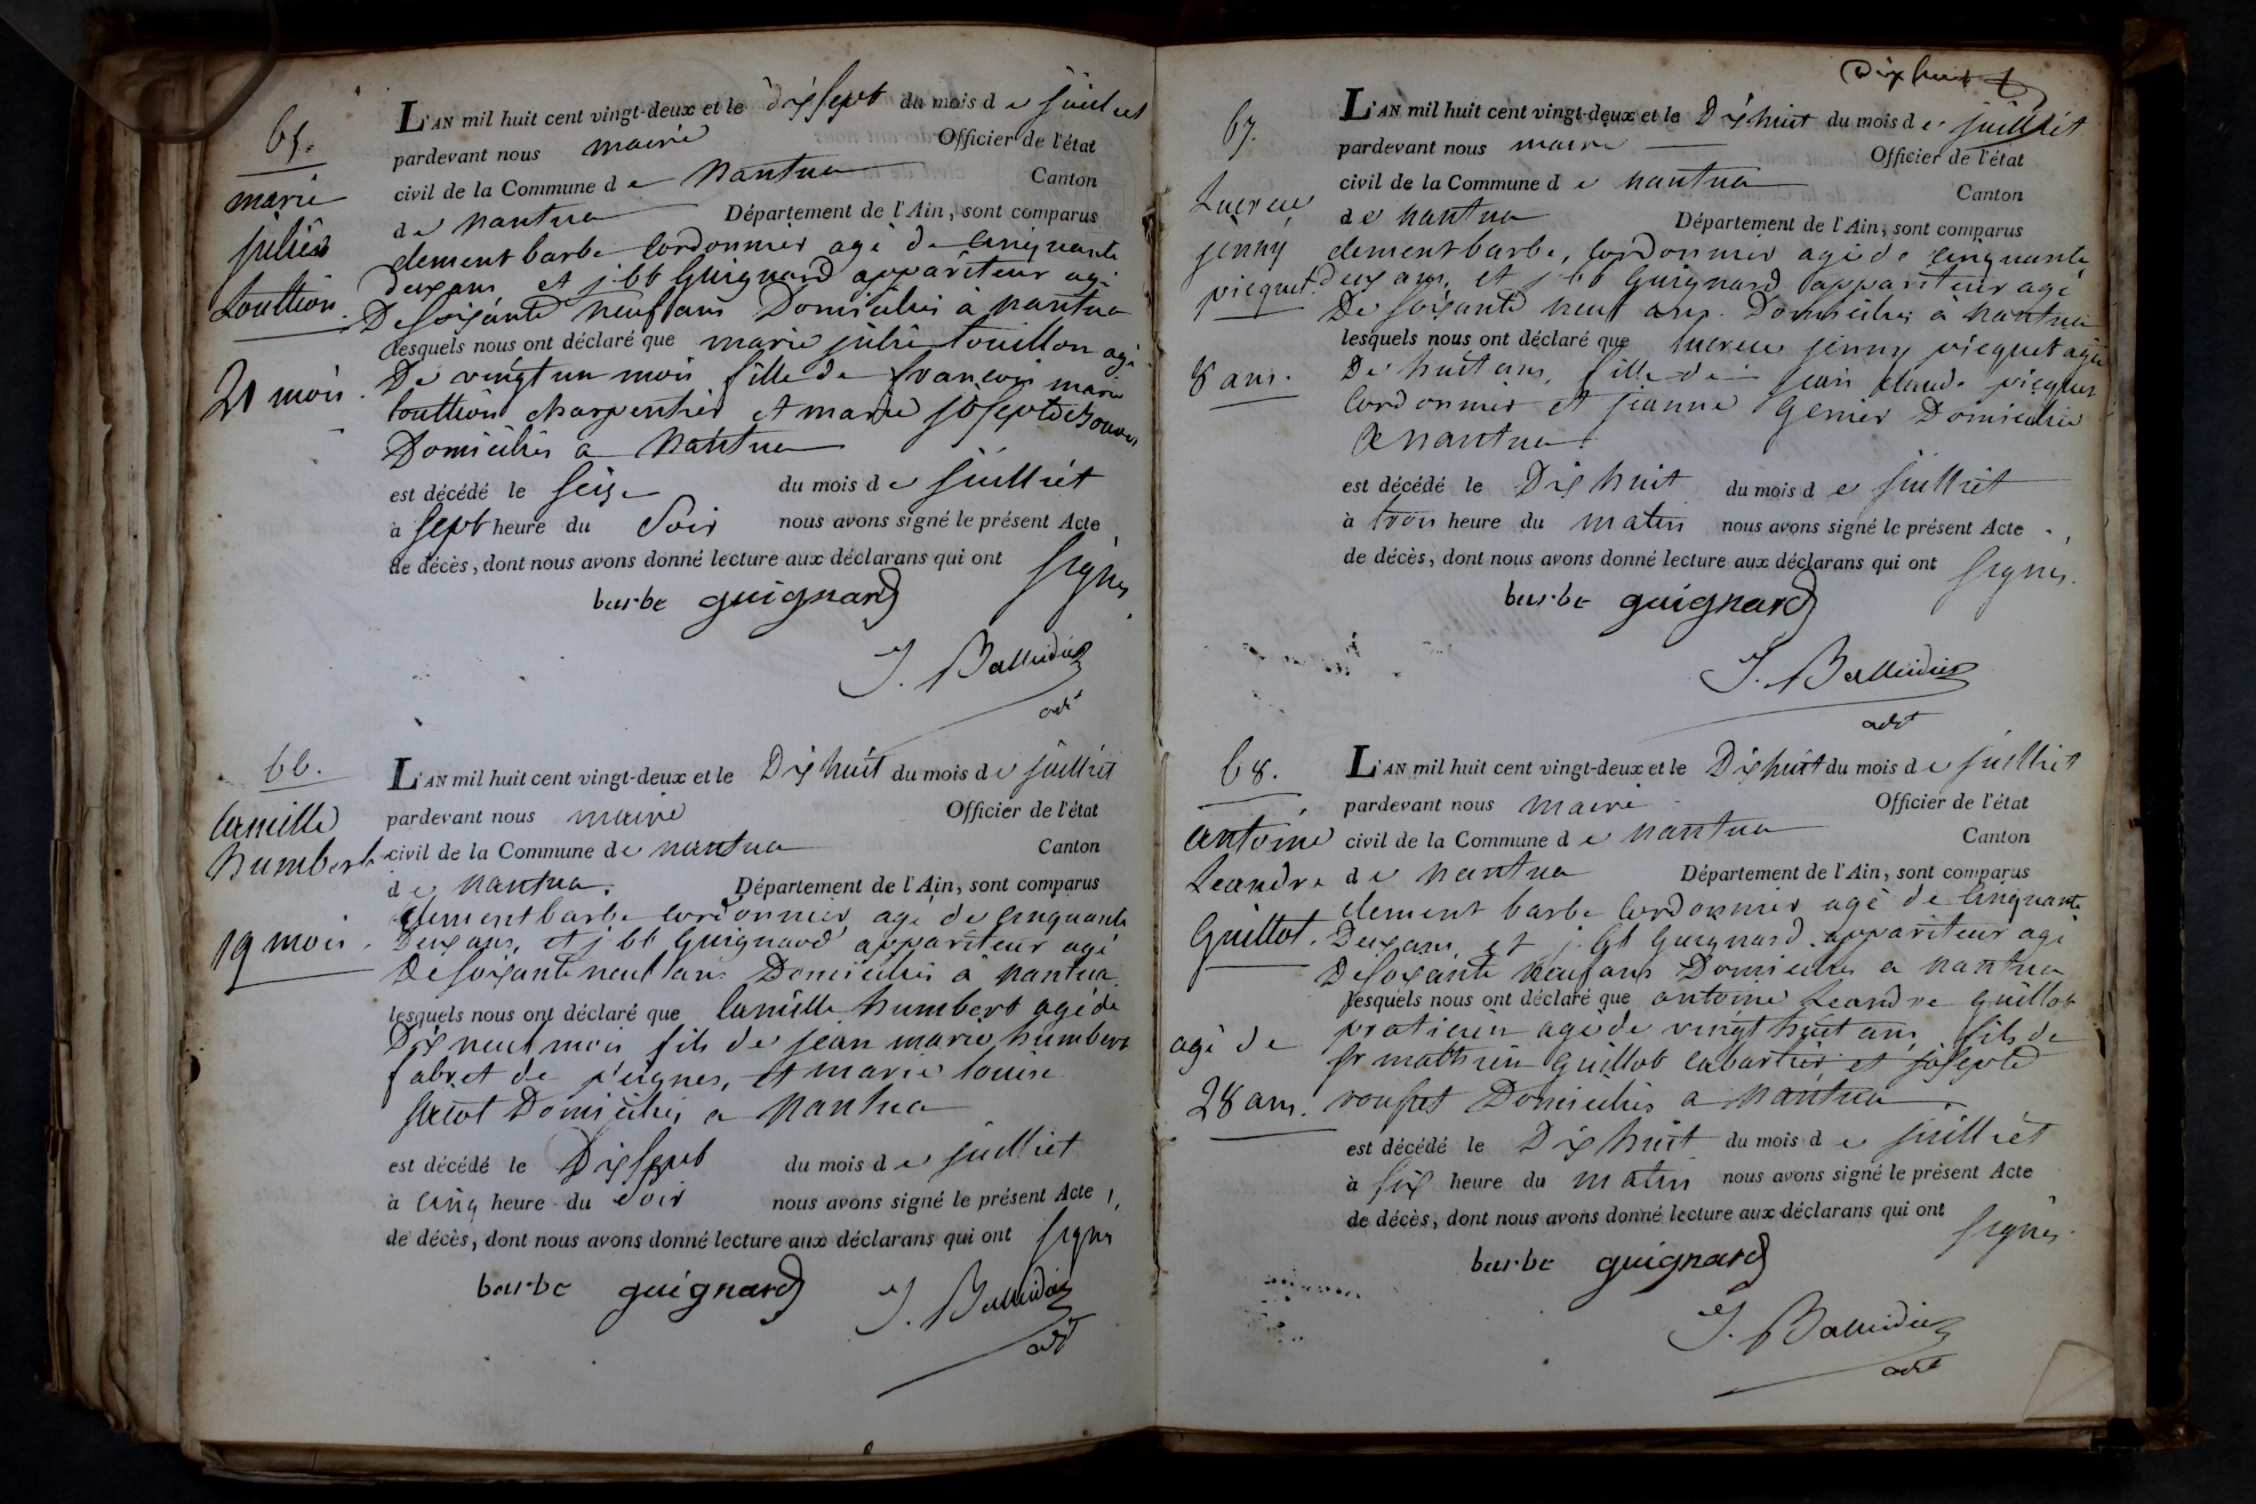 65.
marie
julie
touillon.
21 mois.
L'AN mil huit cent vingt-deux et le dix sept du mois de juillet
pardevant nous maire Officier de l'état
civil de la Commune de nantua Canton
de nantua Département de l'Ain, sont comparus
clement barbe cordonnier agé de cinquante
deux ans et j. bt Guignard appariteur agé
De soixante neuf ans Domiciliés à nantua
lesquels nous ont déclaré que marie julie touillon agé
De vingt un mois fille de françois marie
touillon charpentier et marie josephte
Domiciliés a Nantua
est décédé le seize du mois de juilliet
à sept heure du Soir nous avons signé le présent Acte
de décès, dont nous avons donné lecture aux déclarans qui ont signés
barbe guignard
J. Balleidier
adt
66.
Camille
humbert
19 mois.
L'AN mil huit cent vingt-deux et le Dix huit du mois de juilliet
pardevant nous maire Officier de l'état
civil de la Commune de nantua Canton
de nantua. Département de l'Ain, sont comparus
clement barbe cordonnier agé de cinquante
Deux ans, et j. bt Guignard appariteur agé
De soixante neuf ans Domiciliés à nantua
lesquels nous ont déclaré que Camille humbert agé de
Dix neuf mois fils de jean marie humbert
fabret de peignes, et marie louise
Domiciliés a Nantua
est décédé le Dix sept du mois de juilliet
à cinq heure du soir nous avons signé le présent Acte
de décès, dont nous avons donné lecture aux déclarans qui ont signés
barbe guignard J. Balleidier
adt
Dix huit
67.
Lucrece
jenny
picquet.
8 ans.
L'AN mil huit cent vingt-deux et le Dix huit du mois de juilliet
pardevant nous maire Officier de l'état
civil de la Commune de nantua Canton
de nantua Département de l'Ain, sont comparus
clement barbe, cordonnier agé de cinquante
deux ans, et j. bt Guignard appariteur agé
De soixante neuf ans. Domiciliés à Nantua
lesquels nous ont déclaré que lucrece jenny picquet agée
De huit ans, fille de jean claude picquet
Cordonnier et jeanne Genier Domiciliés
a nantua
est décédé le Dix huit du mois de juilliet
à trois heure du matin nous avons signé le présent Acte
de décès, dont nous avons donné lecture aux déclarans qui ont signés.
barbe guignard
J. Balleidier
adt
68.
antoine
Leandre
Guillot.
agé de
28 ans.
L'AN mil huit cent vingt-deux et le Dix huit du mois de juilliet
pardevant nous maire Officier de l'état
civil de la Commune de nantua Canton
de nantua Département de l'Ain, sont comparus
clement barbe Cordonnier agé de cinquante
Deux ans, et j. bt Guignard appariteur agé
De soixante neuf ans Domiciliés a nantua
lesquels nous ont déclaré que antoine Leandre guillot
praticien agé de vingt huit ans, fils de
fr mathieu guillot cabartier et josephte
Domiciliés a Nantua
est décédé le Dix huit du mois de juilliet
à six heure du matin nous avons signé le présent Acte
de décès, dont nous avons donné lecture aux déclarans qui ont signés.
barbe guignard
J. Balleidier
adt